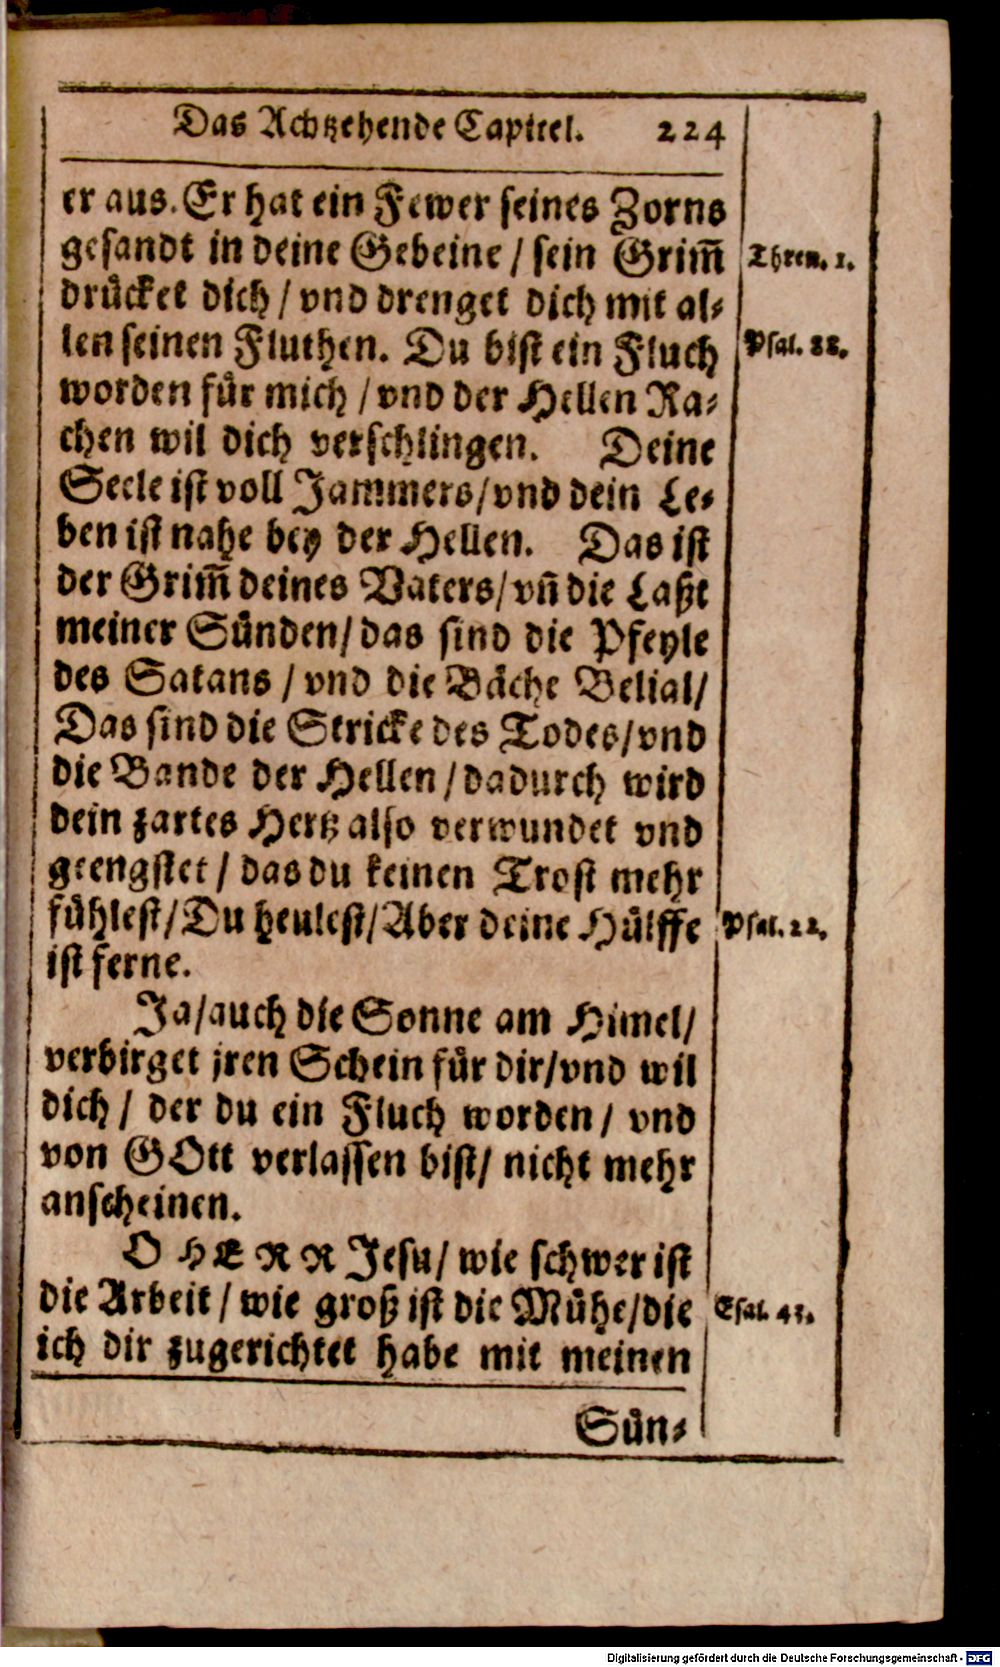 Das Achtzehende Capitel. 224
er aus. Er hat ein Fewer seines Zorns
gesandt in deine Gebeine / sein Grim̅
Thren. 1.
druͤcket dich / vnd drenget dich mit al⸗
len seinen Fluthen. Du bist ein Fluch
Psal. 88.
worden fuͤr mich / vnd der Hellen Ra⸗
chen wil dich verschlingen. Deine
Seele ist voll Jammers / vnd dein Le⸗
ben ist nahe bey der Hellen. Das ist
der Grim̅ deines Vaters / vn̅ die Laßt
meiner Suͤnden / das sind die Pfeyle
des Satans / vnd die Baͤche Belial /
Das sind die Stricke des Todes / vnd
die Bande der Hellen / dadurch wird
dein zartes Hertz also verwundet vnd
geengstet / das du keinen Trost mehr
fuͤhlest / Du heulest / Aber deine Huͤlffe
Psal. 22.
ist ferne.
Ja / auch die Sonne am Himel /
verbirget jren Schein fuͤr dir / vnd wil
dich / der du ein Fluch worden / vnd
von GOtt verlassen bist / nicht mehr
anscheinen.
O HERR Jesu / wie schwer ist
die Arbeit / wie groß ist die Muͤhe / die
Esai. 43.
ich dir zugerichtet habe mit meinen
Suͤn⸗
Digitalisierung gefördert durch die Deutsche Forschungsgemeinschaft - DFG